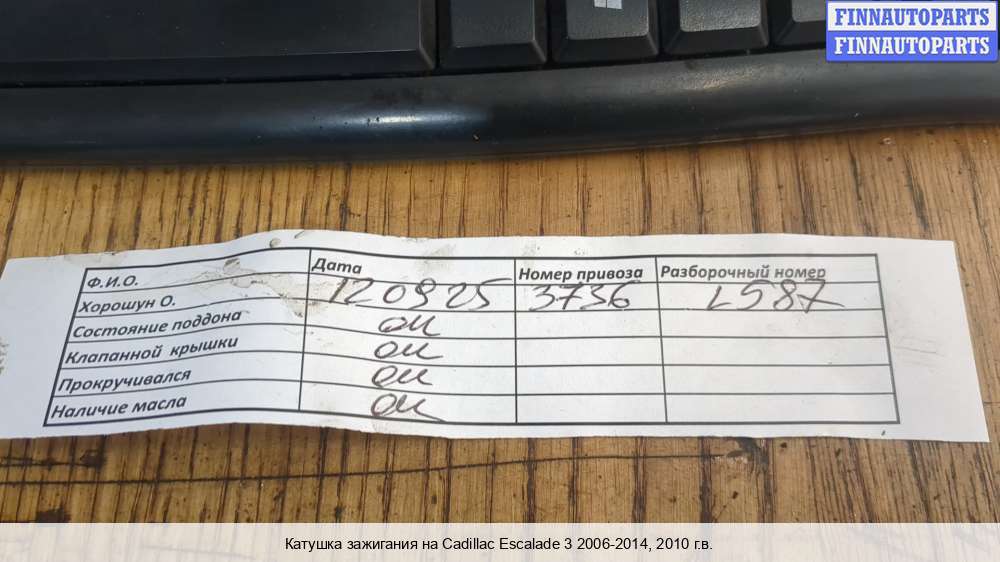 FINNAUTOPARTS
FINNAUTOPARTS
Ф.И.О. Дата Номер привоза Разборочный номер
Хорошун О. 120925 3736 L587
Состояние поддона ок
Клапанной крышки ок
Прокручивался ок
Наличие масла ок
Катушка зажигания на Cadillac Escalade 3 2006-2014, 2010 г.в.